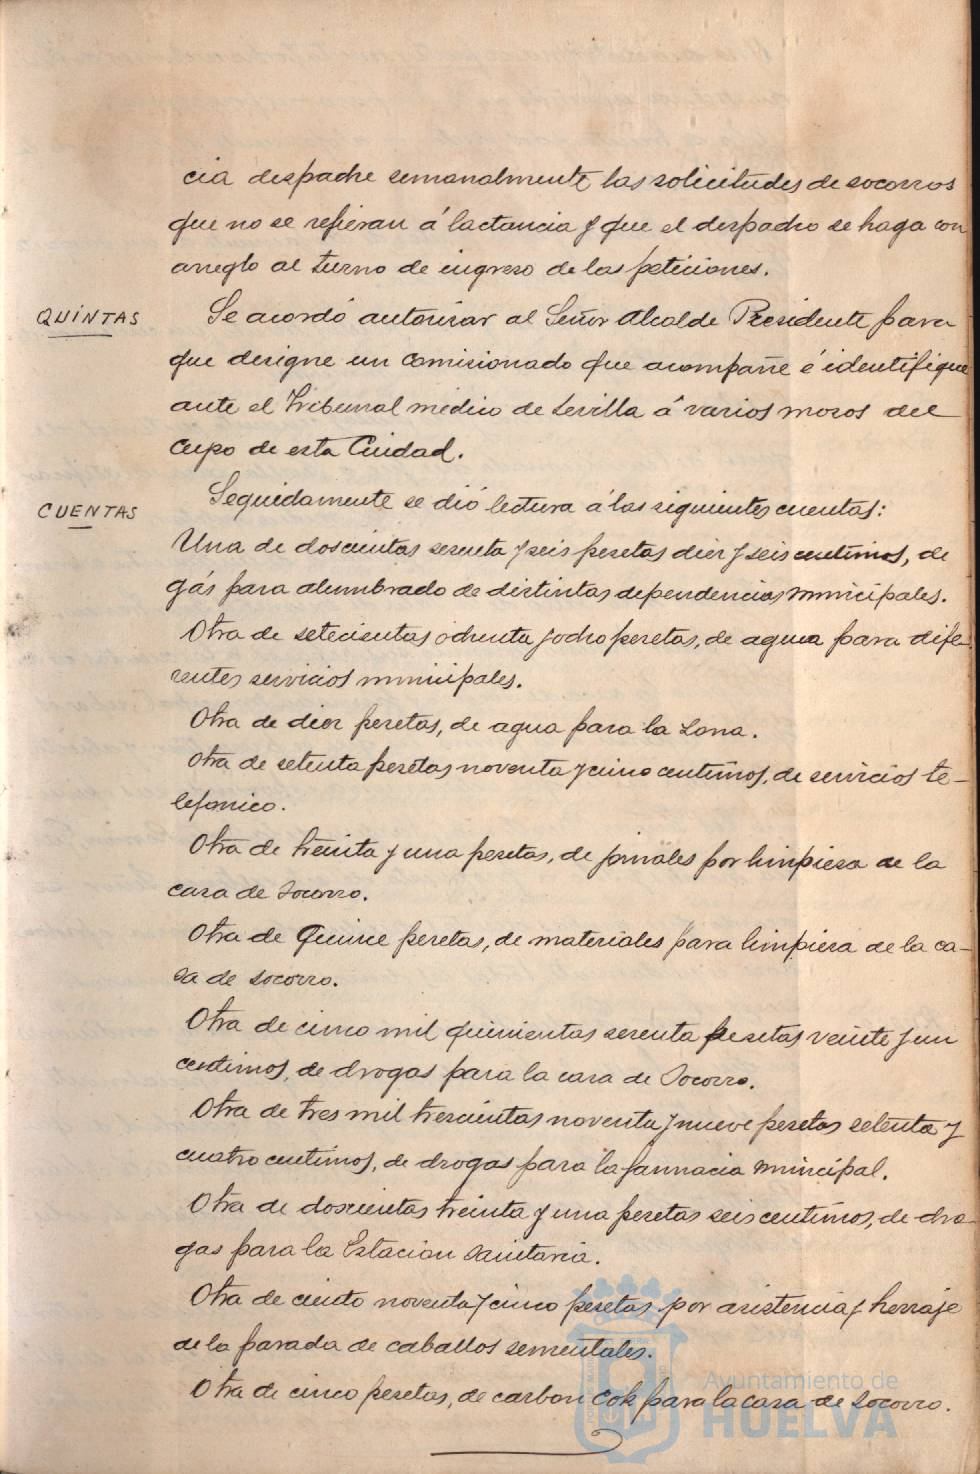 cia despache semanalmente las solicitudes de socorros
que no se refieran á lactancia y que el despacho se haga con
arreglo al turno de ingreso de las peticiones.
QUINTAS
Se acordó autorizar al Señor Alcalde Presidente para
que designe un Comisionado que acompañe é identifique
ante el Tribunal médico de Sevilla á varios mozos del
cupo de esta Ciudad.
CUENTAS
Seguidamente se dió lectura á las siguientes cuentas:
Una de doscientas sesenta y seis pesetas diez y seis centimos, de
gás para alumbrado de distintas dependencias municipales.
Otra de setecientas ochenta y ocho pesetas, de agua para dife-
rentes servicios municipales.
Otra de diez pesetas, de agua para la Zona.
Otra de setenta pesetas noventa y cinco centimos, de servicios te-
lefonico.
Otra de treinta y una pesetas, de jornales por limpieza de la
casa de Socorro.
Otra de Quince pesetas, de materiales para limpieza de la ca-
sa de Socorro.
Otra de cinco mil quinientas sesenta pesetas veinte y un
centimos, de drogas para la casa de Socorro.
Otra de tres mil trescientas noventa y nueve pesetas setenta y
cuatro centimos, de drogas para la farmacia municipal.
Otra de doscientas treinta y una pesetas seis centimos, de dro-
gas para la Estacion Sanitaria.
Otra de ciento noventa y cinco pesetas por asistencia y herraje
de la parada de caballos sementales.
Otra de cinco pesetas, de carbon Cok para la casa de Socorro.
Ayuntamiento de
HUELVA